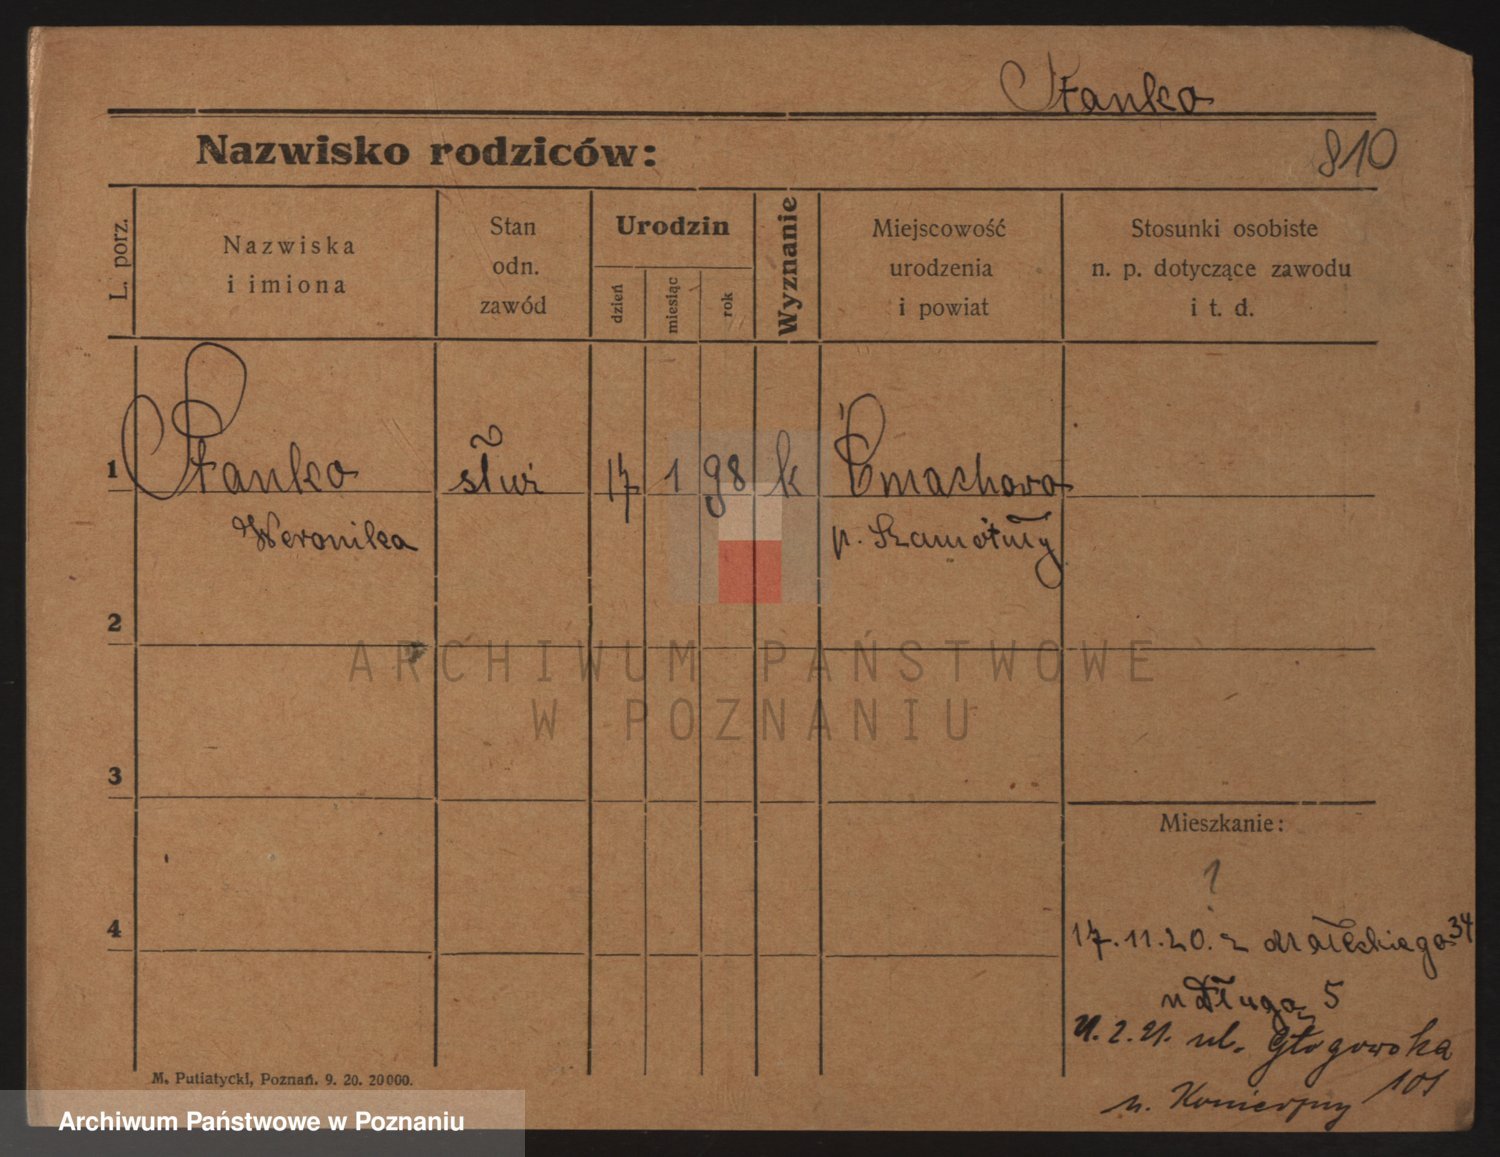 Stanko
Nazwisko rodziców:
810
L. porz.
Nazwiska
i imiona
Stan
odn.
zawód
Urodzin
dzień
miesiąc
rok
Wyznanie
Miejscowość
urodzenia
i powiat
Stosunki osobiste
n. p. dotyczące zawodu
i t. d.
1
Stanko
służ
17
1
98
k
Ćmachowo
Weronika
p. Szamotuły
2
ARCHIWUM PAŃSTWOWE
W POZNANIU
3
Mieszkanie:
?
4
17.11.20. z Małeckiego 34
n Długa 5
21. 2. 21. ul. Głogowska
101
n.
M. Putiatycki, Poznań. 9. 20. 20000.
Archiwum Państwowe w Poznaniu